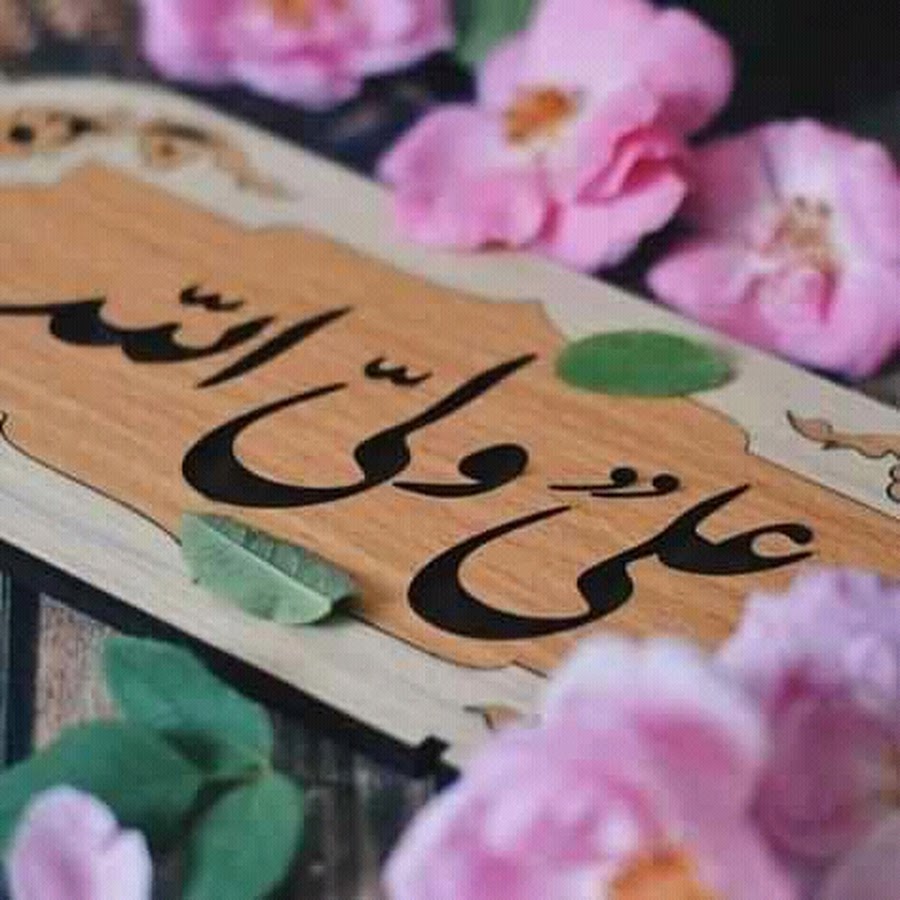 علیٌ ولیّ اللّه